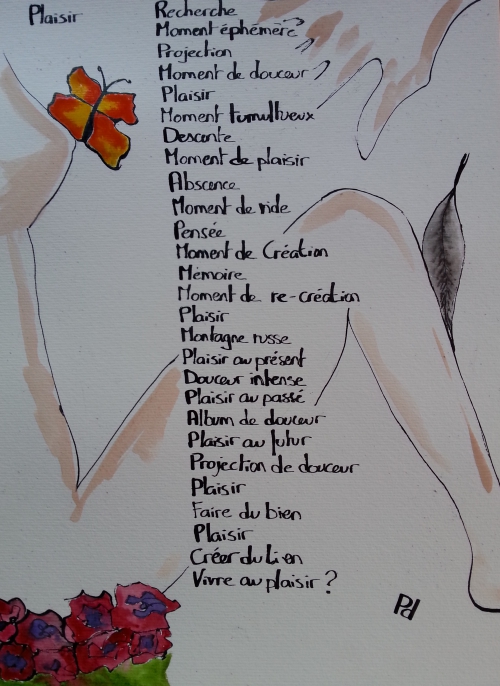 Plaisir
Recherche
Moment éphémère
Projection
Moment de douceur
Plaisir
Moment tumultueux
Descente
Moment de plaisir
Abscence
Moment de vide
Pensée
Moment de Création
Mémoire
Moment de re-création
Plaisir
Montagne russe
Plaisir au présent
Douceur intense
Plaisir au passé
Album de douceur
Plaisir au futur
Projection de douceur
Plaisir
Faire du bien
Plaisir
Créer du Lien
Vivre au plaisir ?
Pd